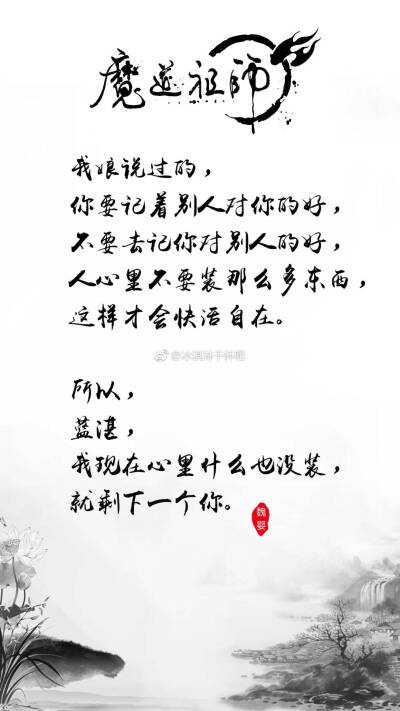 魔道祖师
我娘说过的，
你要记着别人对你的好，
不要去记你对别人的好，
人心里不要装那么多东西，
这样才会快活自在。
所以，
蓝湛，
我现在心里什么也没装，
就剩下一个你。
魏婴